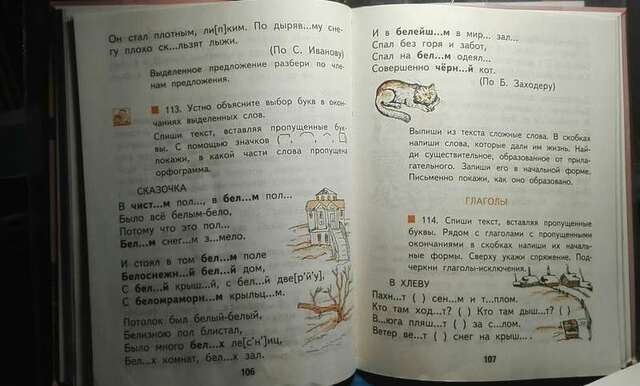 Он стал плотным, ли[п]ким. По дыряв...му сне-
гу плохо ск...льзят лыжи.
(По С. Иванову)
Выделенное предложение разбери по чле-
нам предложения.
113. Устно объясните выбор букв в окон-
чаниях выделенных слов.
Спиши текст, вставляя пропущенные бук-
вы. С помощью значков
покажи, в какой части слова пропущена
орфограмма.
СКАЗОЧКА
В чист...м пол..., в бел...м пол...
Было всё белым-бело,
Потому что это пол...
Бел...м снег...м з...мело.
И стоял в том бел...м поле
Белоснежн...й бел...й дом,
С бел...й крыш...й, с бел...й две[р'й'у],
С беломраморн...м крыльц...м.
Потолок был белый-белый,
Белизною пол блистал,
Было много бел...х ле[с'н']иц,
Бел...х комнат, бел...х зал.
106
И в белейш...м в мир... зал...
Спал без горя и забот,
Спал на бел...м одеял...
Совершенно чёрн...й кот.
(По Б. Заходеру)
Выпиши из текста сложные слова. В скобках
напиши слова, которые дали им жизнь. Най-
ди существительное, образованное от прила-
гательного. Запиши его в начальной форме.
Письменно покажи, как оно образовано.
ГЛАГОЛЫ
114. Спиши текст, вставляя пропущенные
буквы. Рядом с глаголами с пропущенными
окончаниями в скобках напиши их началь-
ные формы. Сверху укажи спряжение. Под-
черкни глаголы-исключения.
В ХЛЕВУ
Пахн...т ( ) сен...м и т...плом.
Кто там ход...т? ( ) Кто там дыш...т? ( )
В...юга пляш...т ( ) за с...лом.
Ветер ве...т ( ) снег на крыш... .
107